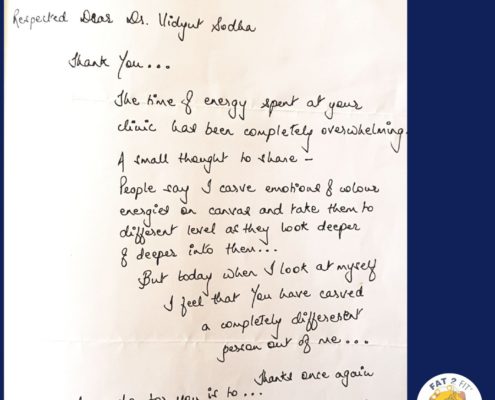 Respected Dear Dr. Vidyut Sodha
Thank You...
The time & energy spent at your
clinic has been completely overwhelming.
A small thought to share –
People say I carve emotions & colour
energies on canvas and take them to
different level as they look deeper
& deeper into them...
But today when I look at myself
I feel that You have carved
a completely different
person out of me...
Thanks once again
for you is to...
FAT 2 FIT